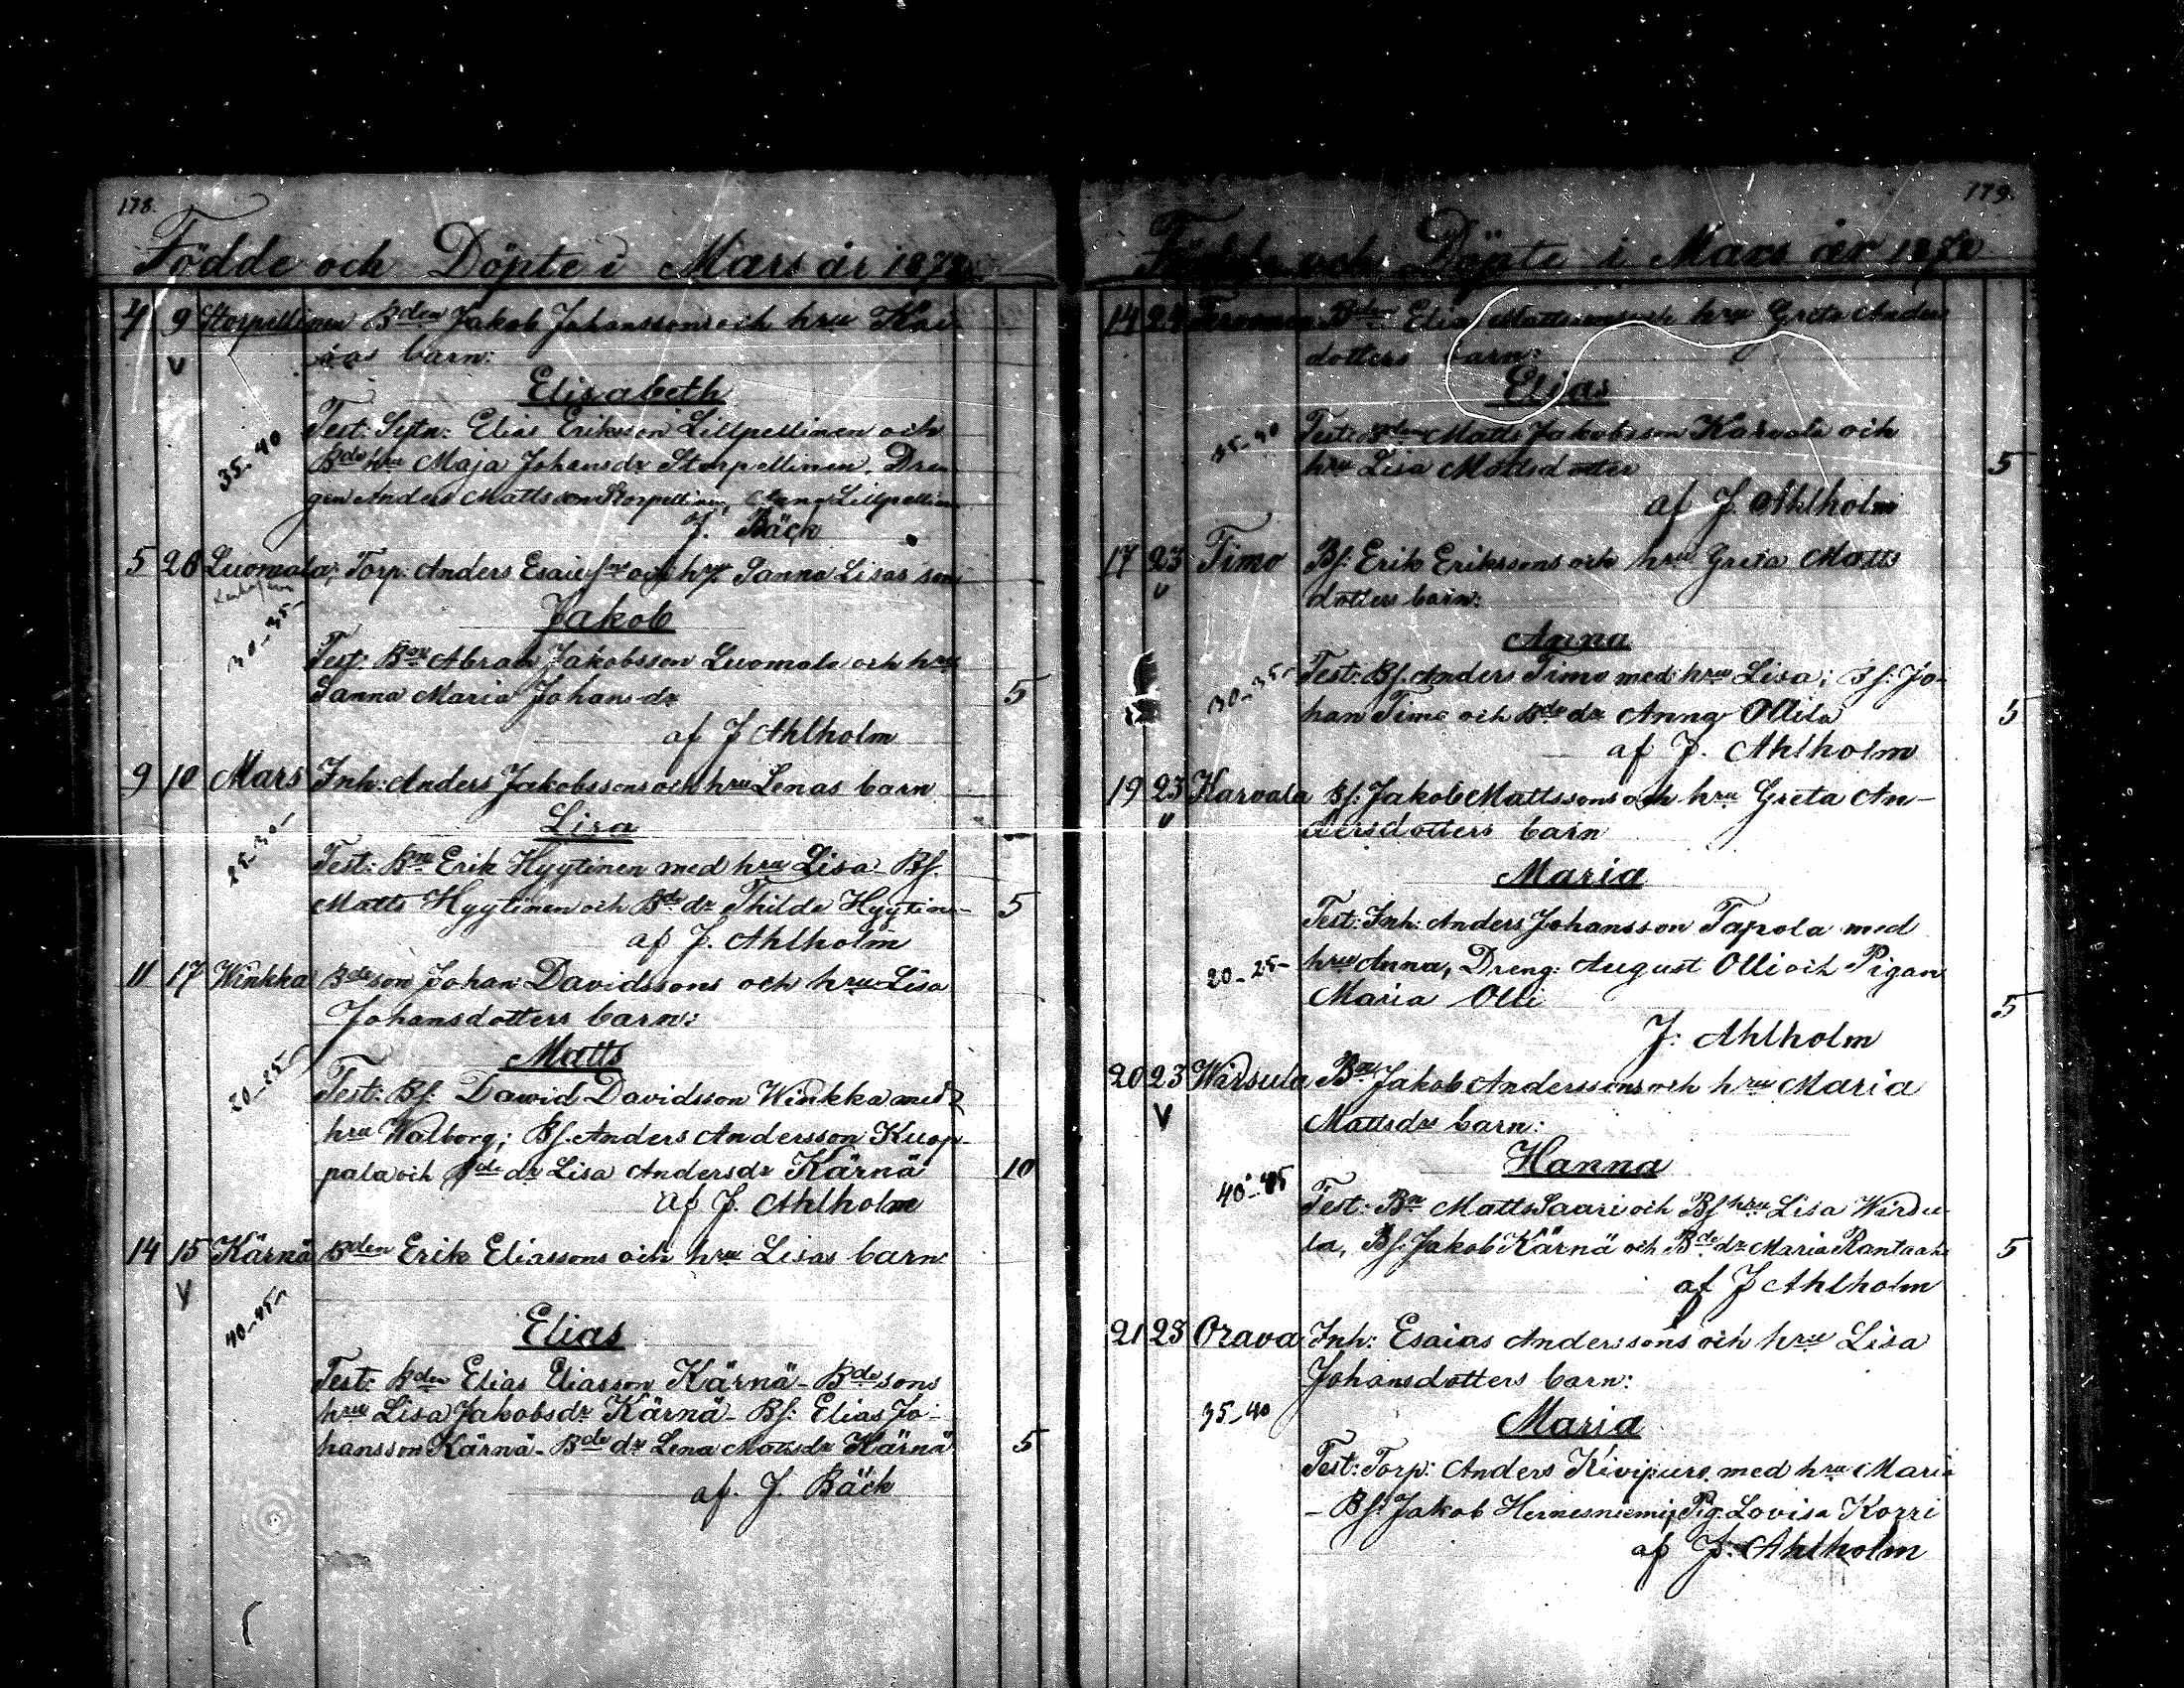 178.
Födde och Döpte i Mars år 1872
4 9 Storpellinen Bden Jakob Johanssons och hru Kai
sas barn:
V
Elisabeth
Test: Sytn: Elias Eriksson Lillpellinen och
35-40
Bde hru Maja Johansdr Storpellinen. Dren
gen Anders Mattsson Storpellinen, Lillpellinen
af J. Bäck
5 20 Luomala; Torp: Anders Esaiæsns och hrs Sanna Lisas son
Jakob
30-35-
Test: Bon Abram Jakobsson Luomala och hru
Sanna Maria Johansdr 5
af J Ahlholm
9 10 Mars Inh: Anders Jakobssons och hru Lenas barn
Lisa
25-30-
Test: Bon Erik Hyytinen med hru Lisa - Bf.
Matts Hyytinen och Bde dr Thilda Hyytin- 5
af J. Ahlholm
11 17 Winkka Bdeson Johan Davidssons och hru Lisa
Johansdotters barn:
Matts
20-25-
Test: Bf. Dawid Davidsson Winkka med
hru Walborg; Bf. Anders Andersson Kuop-
pala och Bde dr Lisa Andersdr Kärnä 10
af J. Ahlholm
14 15 Kärnä Bden Erik Eliassons och hru Lisas barn
V
40-45-
Elias
Test: Bden Elias Eliasson Kärnä - Bdesons
hru Lisa Jakobsdr Kärnä - Bf: Elias Jo-
hansson Kärnä - Bde dr Lena Mattsdr Kärnä 5
af. J. Bäck
179.
Födde och Döpte i Mars år 1872
14 24 Bden Elias Mattssons och hru Greta Anders
dotters barn:
Elias
35-40
Test: Bden Matts Jakobsson Karvala och
hru Lisa Mattsdotter 5
af J. Ahlholm
17 23 Timo Bf: Erik Erikssons och hru Greta Matts
V
dotters barn:
Anna
30-35-
Test: Bf. Anders Timo med hru Lisa; Bf: Jo-
han Timo och Bde dr Anna Ollila 5
af J. Ahlholm
19 23 Karvala Bf: Jakob Mattssons och hru Greta An-
V
dersdotters barn
Maria
Test: Inh: Anders Johansson Tapola med
20-25-
hru Anna, Dreng: August Olli och Pigan
Maria Olli 5
J. Ahlholm
20 23 Wirsula Bon Jakob Anderssons och hru Maria
V
Mattsdrs barn:
Hanna
40-45
Test: Bn Matts Saari och Bf hru Lisa Wirsu
la, Bf: Jakob Kärnä och Bde dr Maria Rantaaho 5
af J Ahlholm
21 23 Orava Inh: Esaias Anderssons och hru Lisa
Johansdotters barn:
35-40
Maria
Test: Torp: Anders Kivipuro med hru Maria
- Bf: Jakob Hernesniemi, Pig. Lovisa Korri
af J. Ahlholm